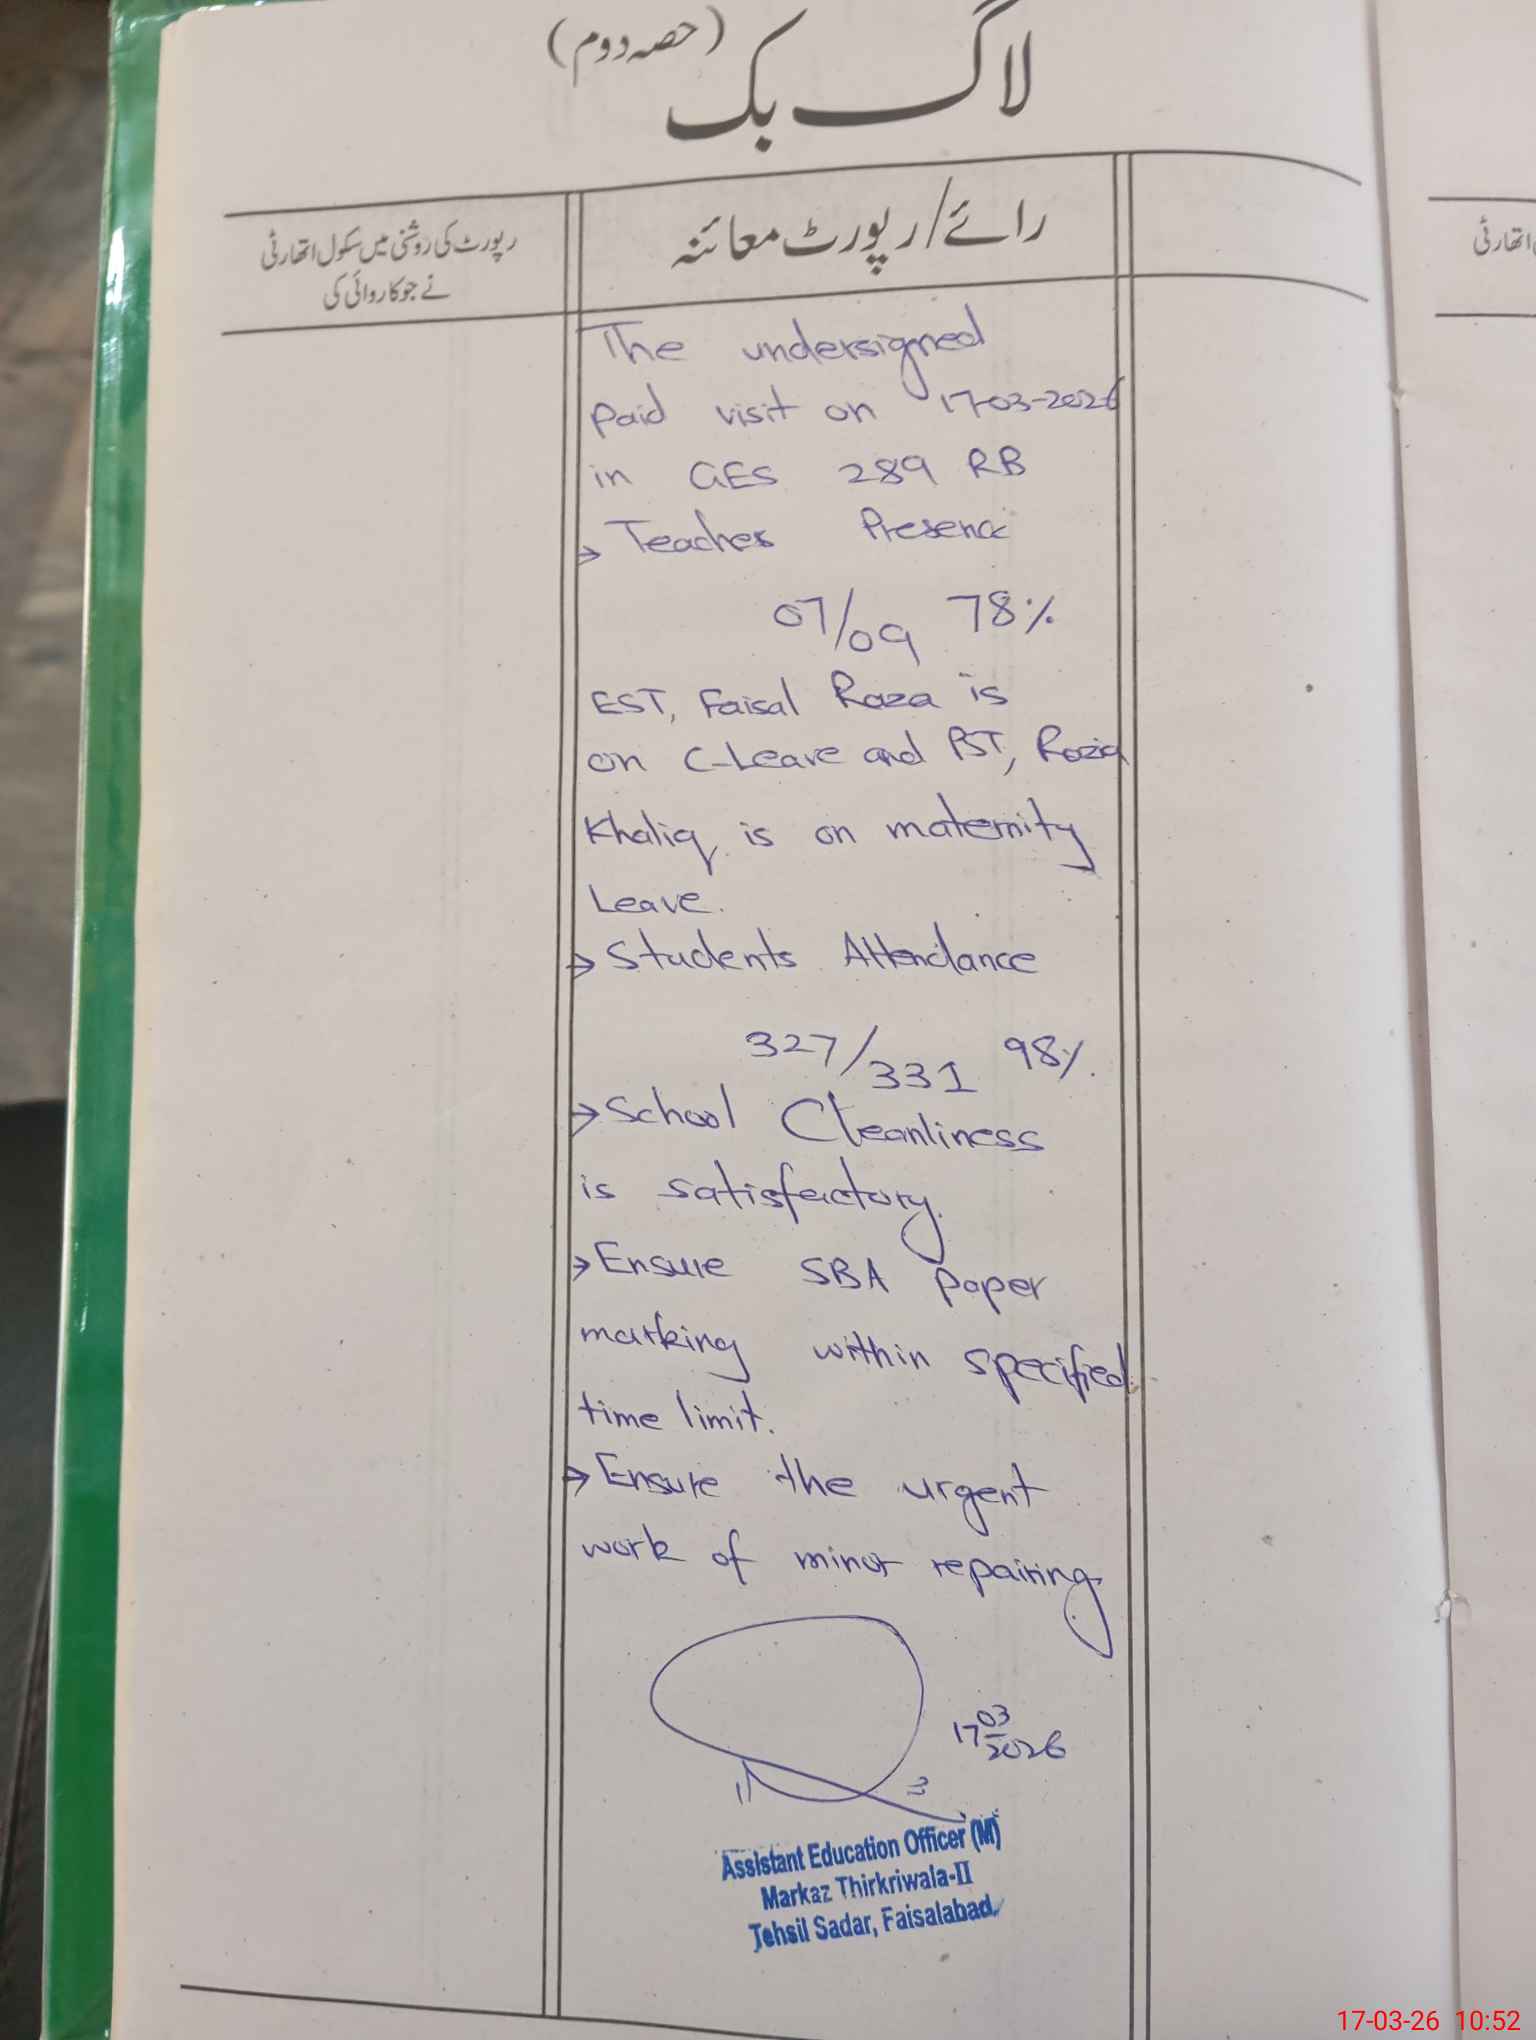 لاگ بک (حصہ دوم)
رائے/رپورٹ معائنہ
رپورٹ کی روشنی میں سکول اتھارٹی
نے جو کاروائی کی
اتھارٹی
The undersigned
paid visit on 17-03-2026
in GES 289 RB
→ Teacher Presence
07/09 78%
EST, Faisal Raza is
on C-Leave and PST, Razia
Khaliq is on maternity
Leave.
→ Students Attendance
327/331 98%.
→ School Cleanliness
is satisfactory.
→ Ensure SBA paper
marking within specified
time limit.
→ Ensure the urgent
work of minor repairing.
17 03
2026
Assistant Education Officer (M)
Markaz Thirkriwala-II
Tehsil Sadar, Faisalabad.
17-03-26 10:52